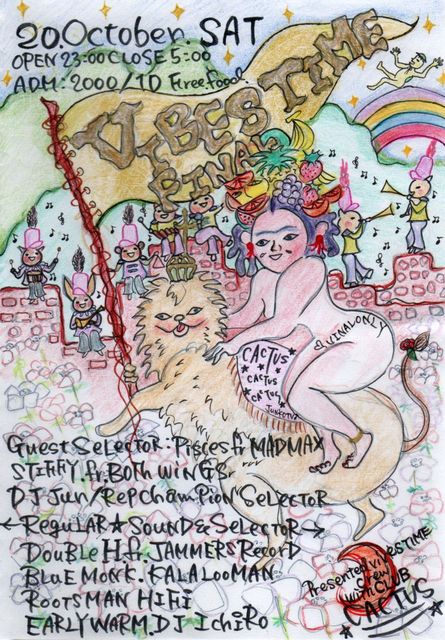 20.October. SAT
OPEN 23:00 CLOSE 5:00
ADM: 2000/1D Free Food
VIBES TIME
BINAL
CACTUS
CACTUS
CACTUS
VINAL ONLY
Guest Selector: Pisces fr MADMAX
STIFFY. fr. Both WINGS
DJ Jun/Rep Champion Selector
←Regular★Sound&Selector→
Double H fr. JAMMERS Record
BLUE MONK. KALALOOMAN
ROOTSMAN HIFI
EARLY WARM. DJ IchiRo
Presented VIBESTIME
Crew
With CLUB
CACTUS